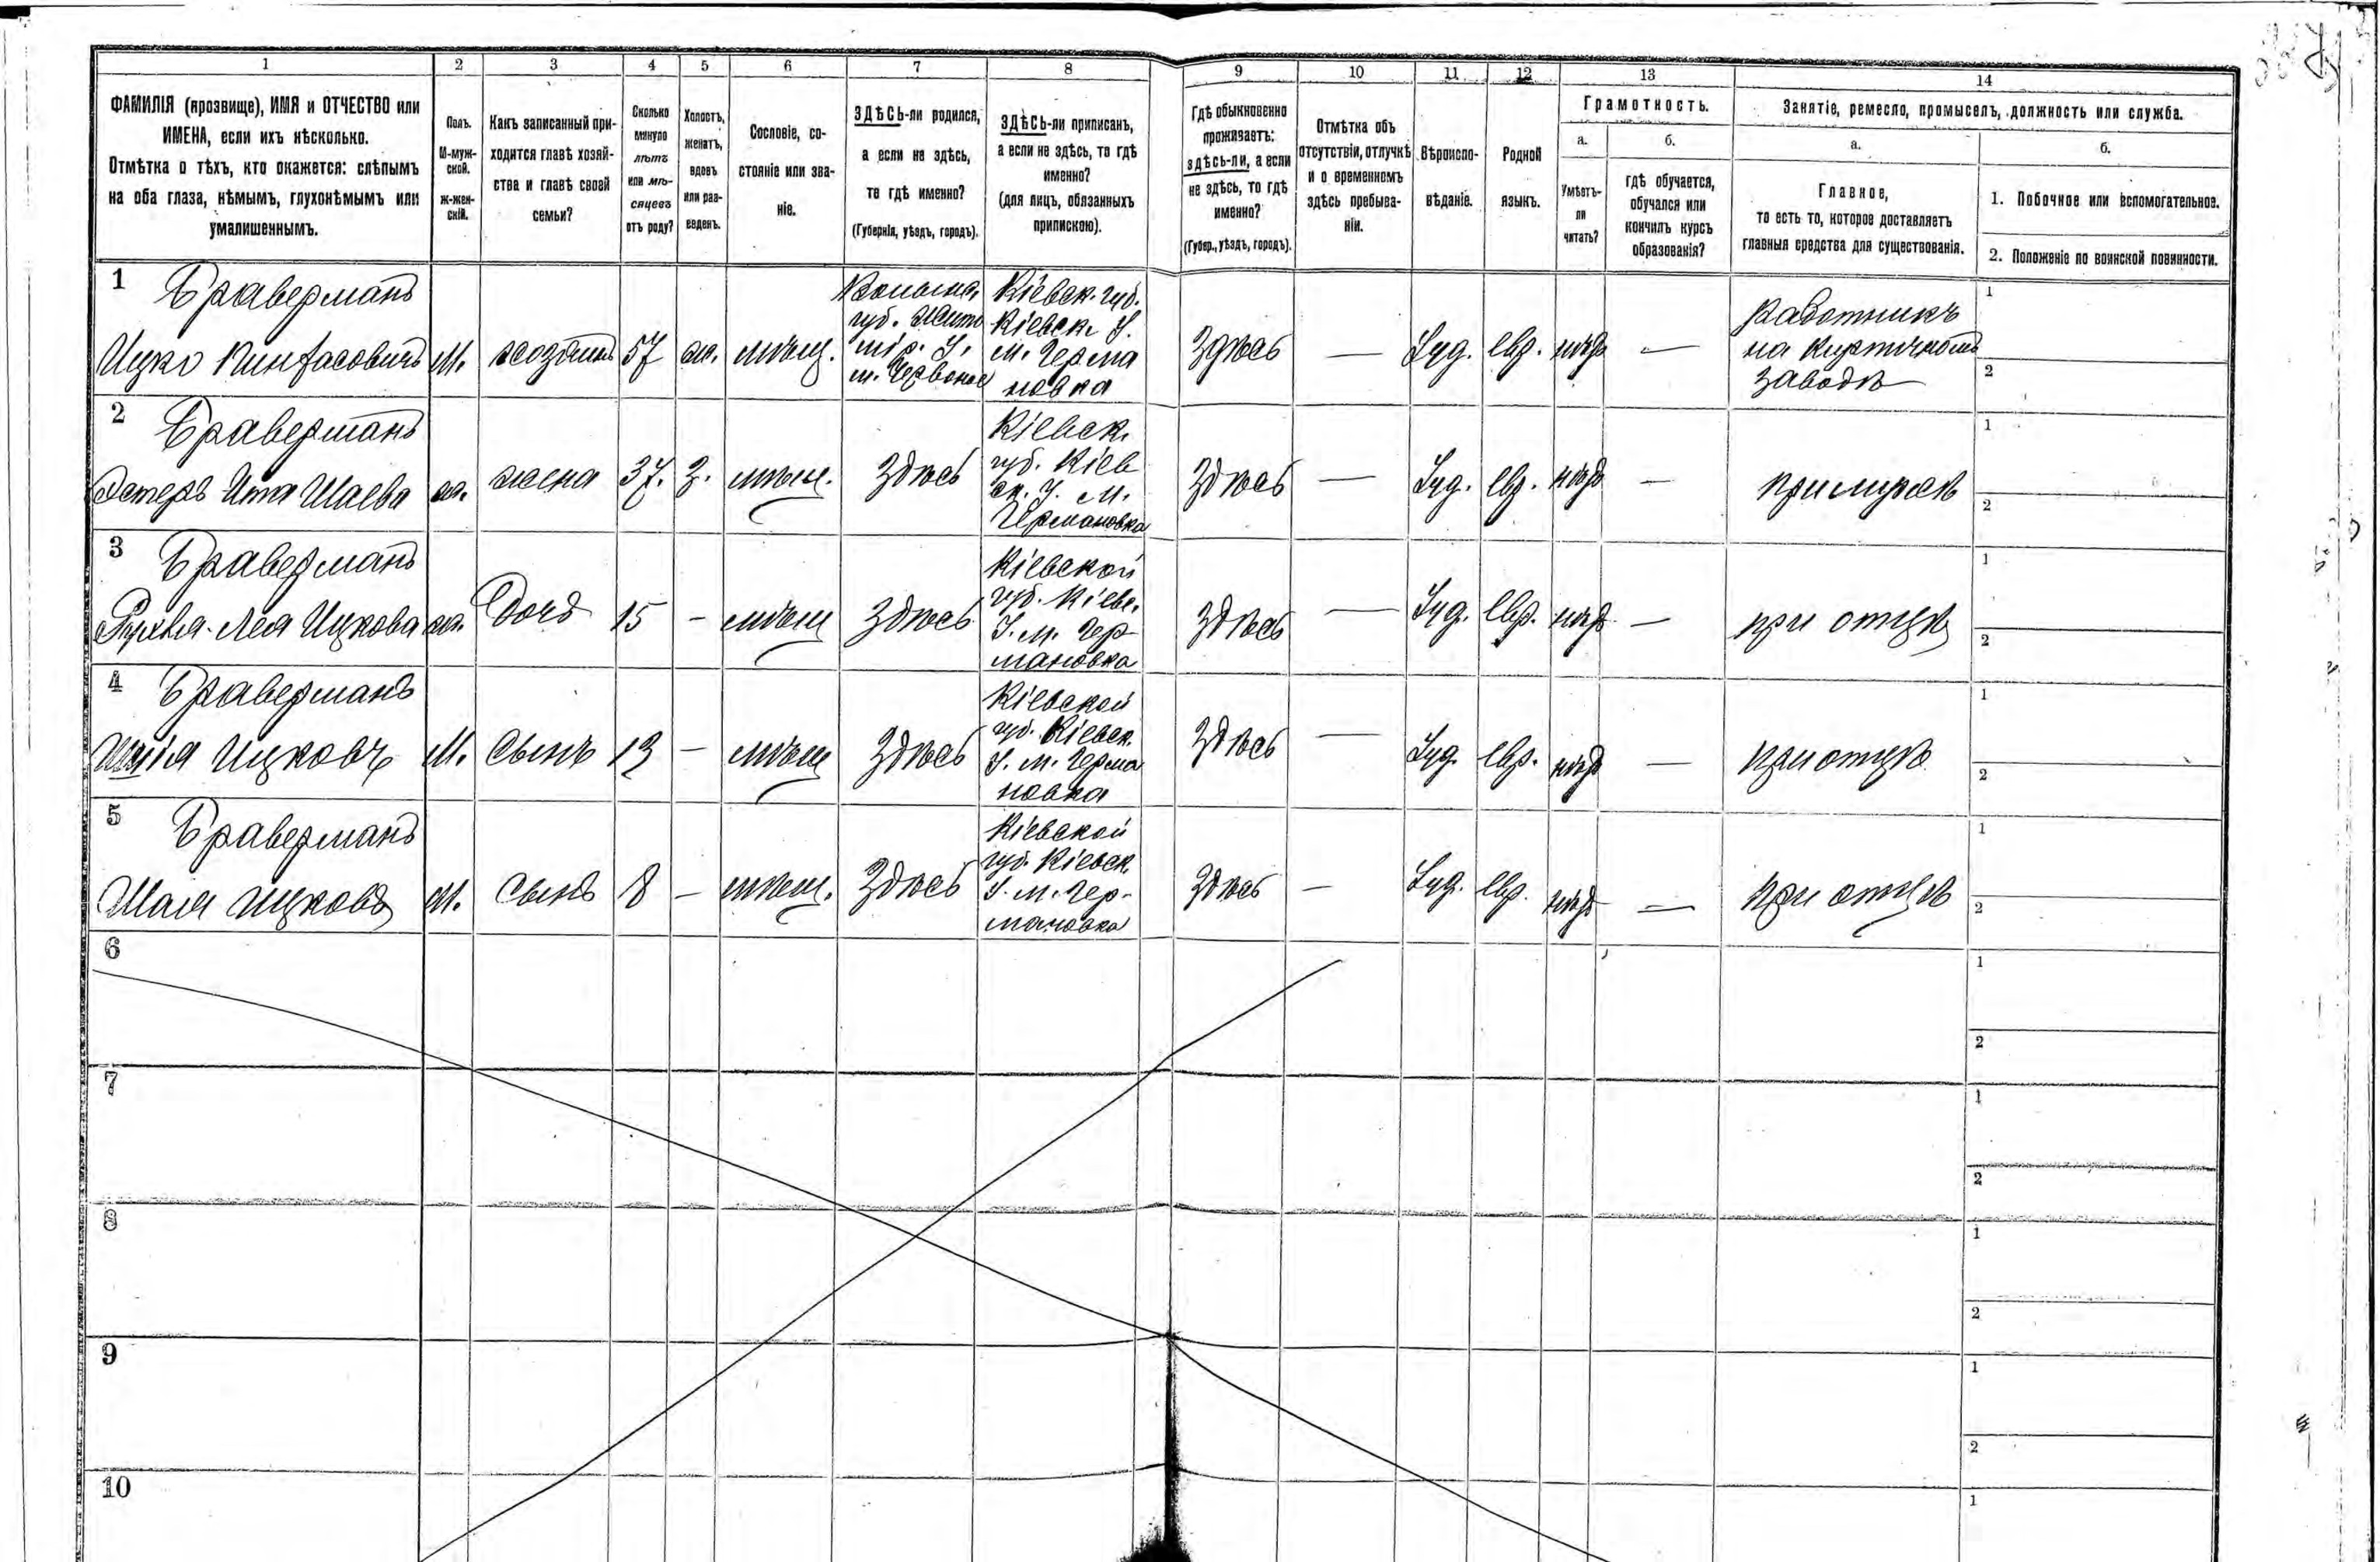 1 2 3 4 5 6 7 8 9 10 11 12 13 14
ФАМИЛІЯ (прозвище), ИМЯ и ОТЧЕСТВО или
ИМЕНА, если ихъ нѣсколько.
Отмѣтка о тѣхъ, кто окажется: слѣпымъ
на оба глаза, нѣмымъ, глухонѣмымъ или
умалишеннымъ.
Полъ.
М-муж-
ской.
Ж-жен-
скій.
Какъ записанный при-
ходится главѣ хозяй-
ства и главѣ своей
семьи?
Сколько
минуло
лѣтъ
или мѣ-
сяцевъ
отъ роду?
Холостъ,
женатъ,
вдовъ
или раз-
веденъ.
Сословіе, со-
стояніе или зва-
ніе.
ЗДѢСЬ-ли родился,
а если не здѣсь,
то гдѣ именно?
(Губернія, уѣздъ, городъ).
ЗДѢСЬ-ли приписанъ,
а если не здѣсь, то гдѣ
именно?
(для лицъ, обязанныхъ
припискою).
Гдѣ обыкновенно
проживаетъ:
здѣсь-ли, а если
не здѣсь, то гдѣ
именно?
(Губер., уѣздъ, городъ).
Отмѣтка объ
отсутствіи, отлучкѣ
и о временномъ
здѣсь пребыва-
ніи.
Вѣроиспо-
вѣданіе.
Родной
языкъ.
Грамотность.
а.
Умѣетъ-
ли
читать?
б.
гдѣ обучается,
обучался или
кончилъ курсъ
образованія?
Занятіе, ремесло, промыселъ, должность или служба.
а.
Главное,
то есть то, которое доставляетъ
главныя средства для существованія.
б.
1. Побочное или вспомогательное.
2. Положеніе по воинской повинности.
1 Браверманъ
Ицко Пинфасовичъ М. хозяинъ 57 ж. мѣщ.
губ. Жито
мір. У.
Кіевск. губ.
Кіевск. У.
м. Герма
новка
Здѣсь — Іуд. евр. нѣтъ —
Работникъ
на Кирпичномъ
заводѣ
1
2
2 Браверманъ
Эстеръ Ита Шаева ж. жена 37. З. мѣщ. Здѣсь
Кіевск.
губ. Кіев
ск. У. м.
Германовка
Здѣсь — Іуд. евр. нѣтъ — при мужѣ
1
2
3 Браверманъ
Рухля-Лея Ицкова ж. Дочь 15 - мѣщ Здѣсь
Кіевской
губ. Кіевс.
У. м. Гер-
мановка
Здѣсь — Іуд. Евр. нѣтъ — при отцѣ
1
2
4 Браверманъ
Ицковъ М. Сынъ 13 - мѣщ Здѣсь
Кіевской
губ. Кіевск.
У. м. Герма
новка
Здѣсь — Іуд. Евр. нѣтъ — при отцѣ
1
2
5 Браверманъ
Шая Ицковъ М. Сынъ 8 - мѣщ. Здѣсь
Кіевской
губ. Кіевск.
У. м. Гер-
мановка
Здѣсь — Іуд. евр. нѣтъ — при отцѣ
1
2
6
1
2
7
1
2
8
1
2
9
1
2
10
1